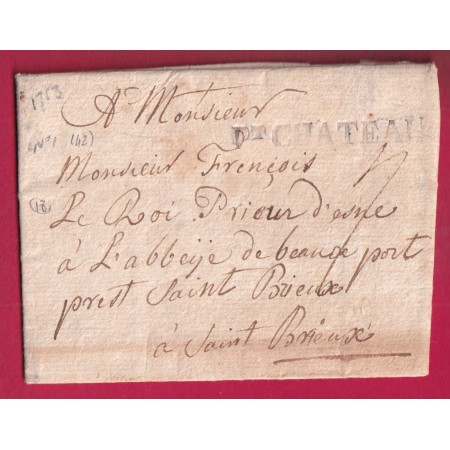 1753
A Monsieur
N°1 (42)
Dᵘᵉ CHATEAU
Monsieur Frençois
(18)
Le Roi Prieur d'esne
à L'abbeije de beauge port
prest Saint Brieux
à Saint Brieux